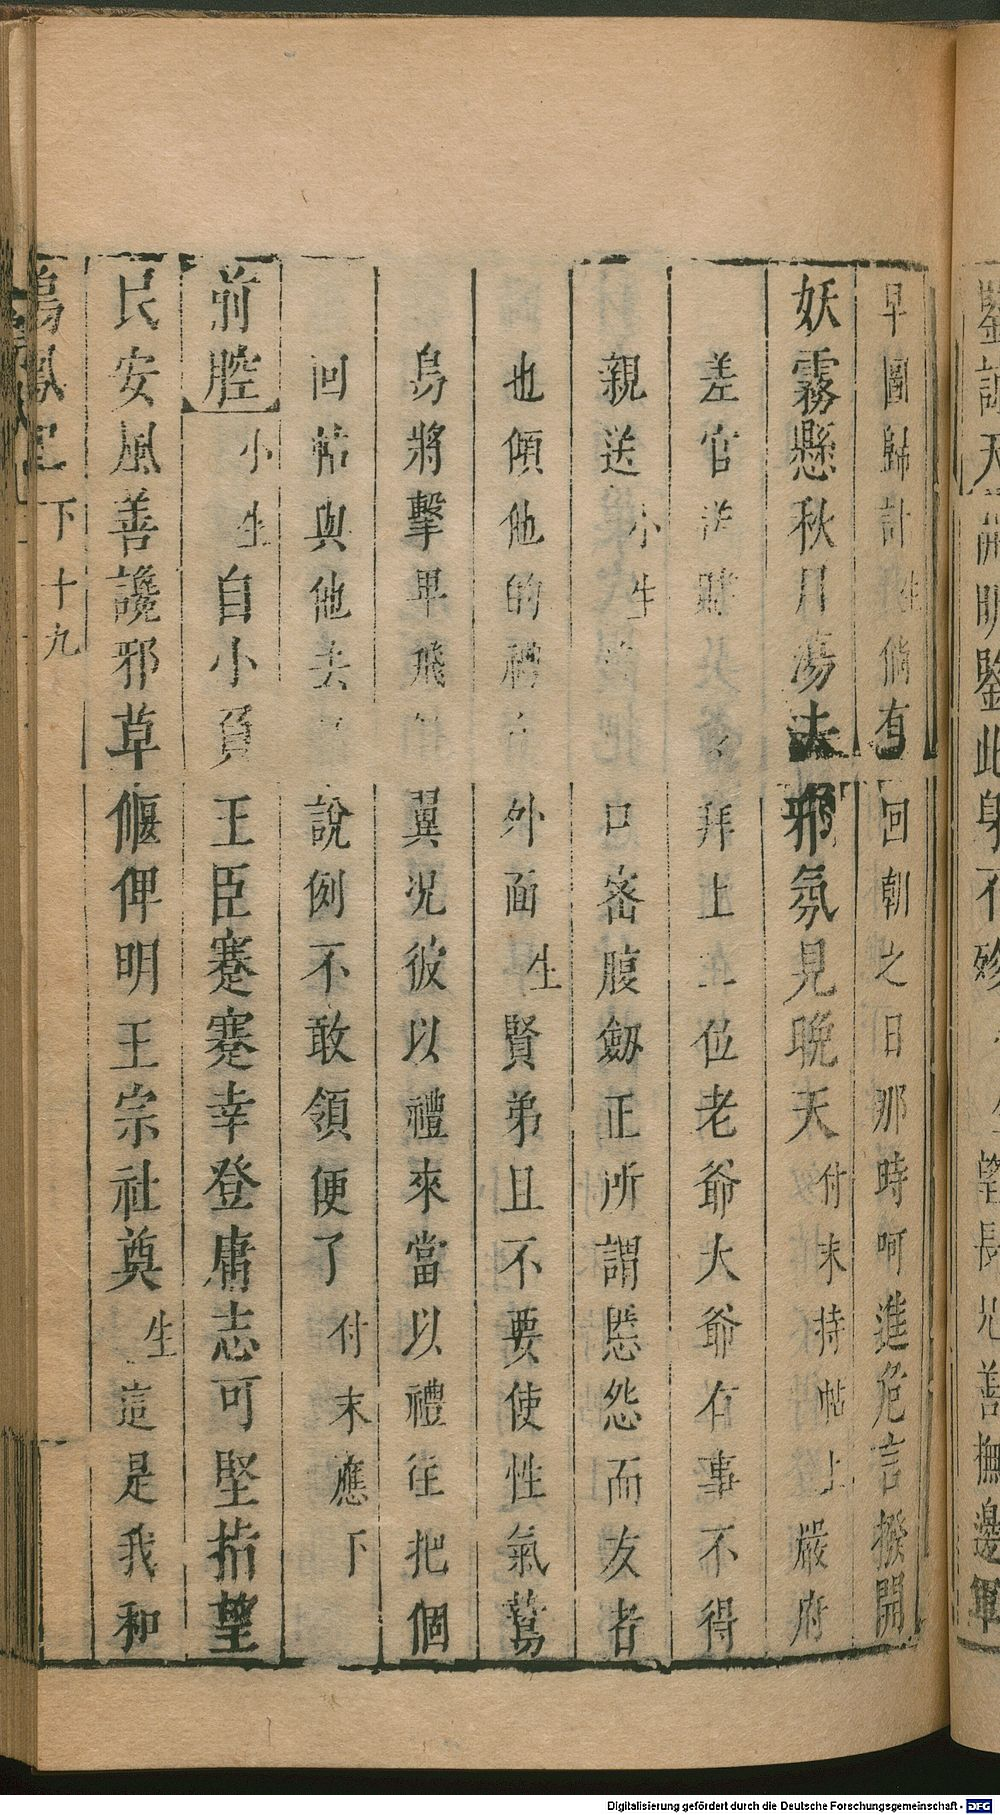 早圖歸計生倘有回朝之日那時呵進危言撥開
妖霧懸秋月蕩去邪氛見晚天付末持帖上嚴府
差官送 拜上二位老爺大爺有事不得
親送小生 口蜜腹劔正所謂慝怨而友者
也傾他的禮 外面生賢弟且不要使性氣蔦
鳥將擊卑飛 翼況彼以禮來當以禮往把個
回帖與他去 說例不敢領便了付末應下
前腔小生自小負王臣蹇蹇幸登庸志可堅指望
民安風善讒邪草偃俾明王宗社奠生這是我和
鳳記 下十九
Digitalisierung gefördert durch die Deutsche Forschungsgemeinschaft - DFG